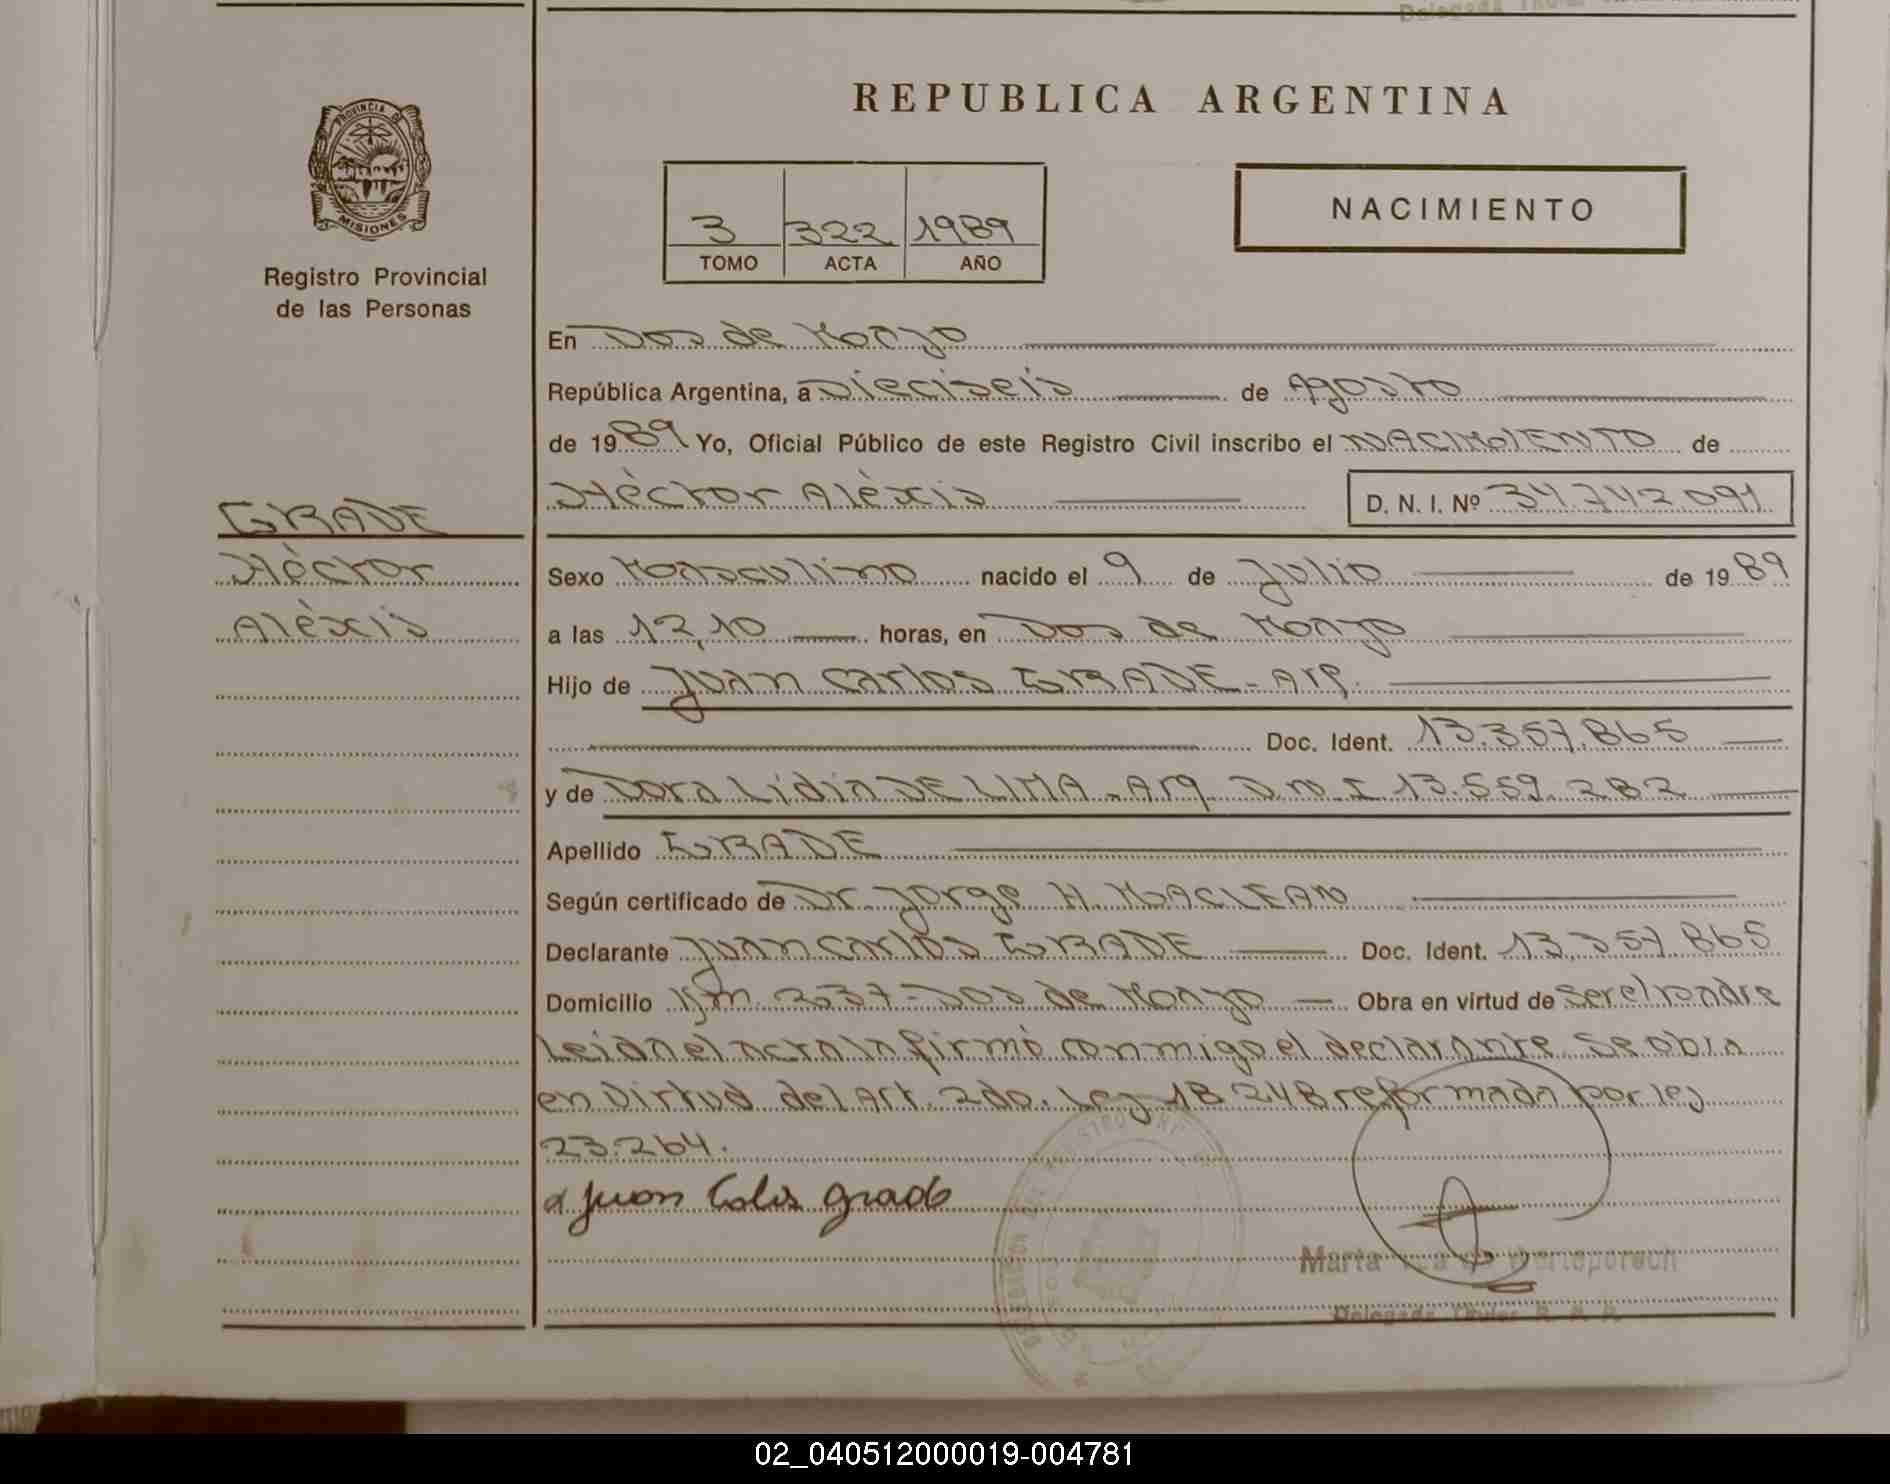 REPUBLICA ARGENTINA
PROVINCIA DE
MISIONES
Registro Provincial
de las Personas
3 322 1989
TOMO ACTA AÑO
NACIMIENTO
En Dos de Mayo
República Argentina, a Dieciseis de Agosto
de 1989 Yo, Oficial Público de este Registro Civil inscribo el NACIMIENTO de
Héctor Aléxis D. N. I. Nº 34.742.091
GRADE
Héctor
Aléxis
Sexo Masculino nacido el 9 de Julio de 1989
a las 12,10 horas, en Dos de Mayo
Hijo de Juan Carlos GRADE - Arg.
Doc. Ident. 13.357.865
y de Dora Lidia DE LIMA - Arg D.N.I 13.559.282
Apellido GRADE
Según certificado de Dr. Jorge H. MACLEAN
Declarante Juan Carlos GRADE Doc. Ident. 13.357.865
Domicilio Km. 237 - Dos de Mayo Obra en virtud de ser el padre
Leida el acta la firmó conmigo el declarante Se obra
en Virtud del Art. 2do. Ley 18.248 reformada por ley
23.264.
Juan Carlos Grade
Marta
Delegada Titular R. P.
02_040512000019-004781